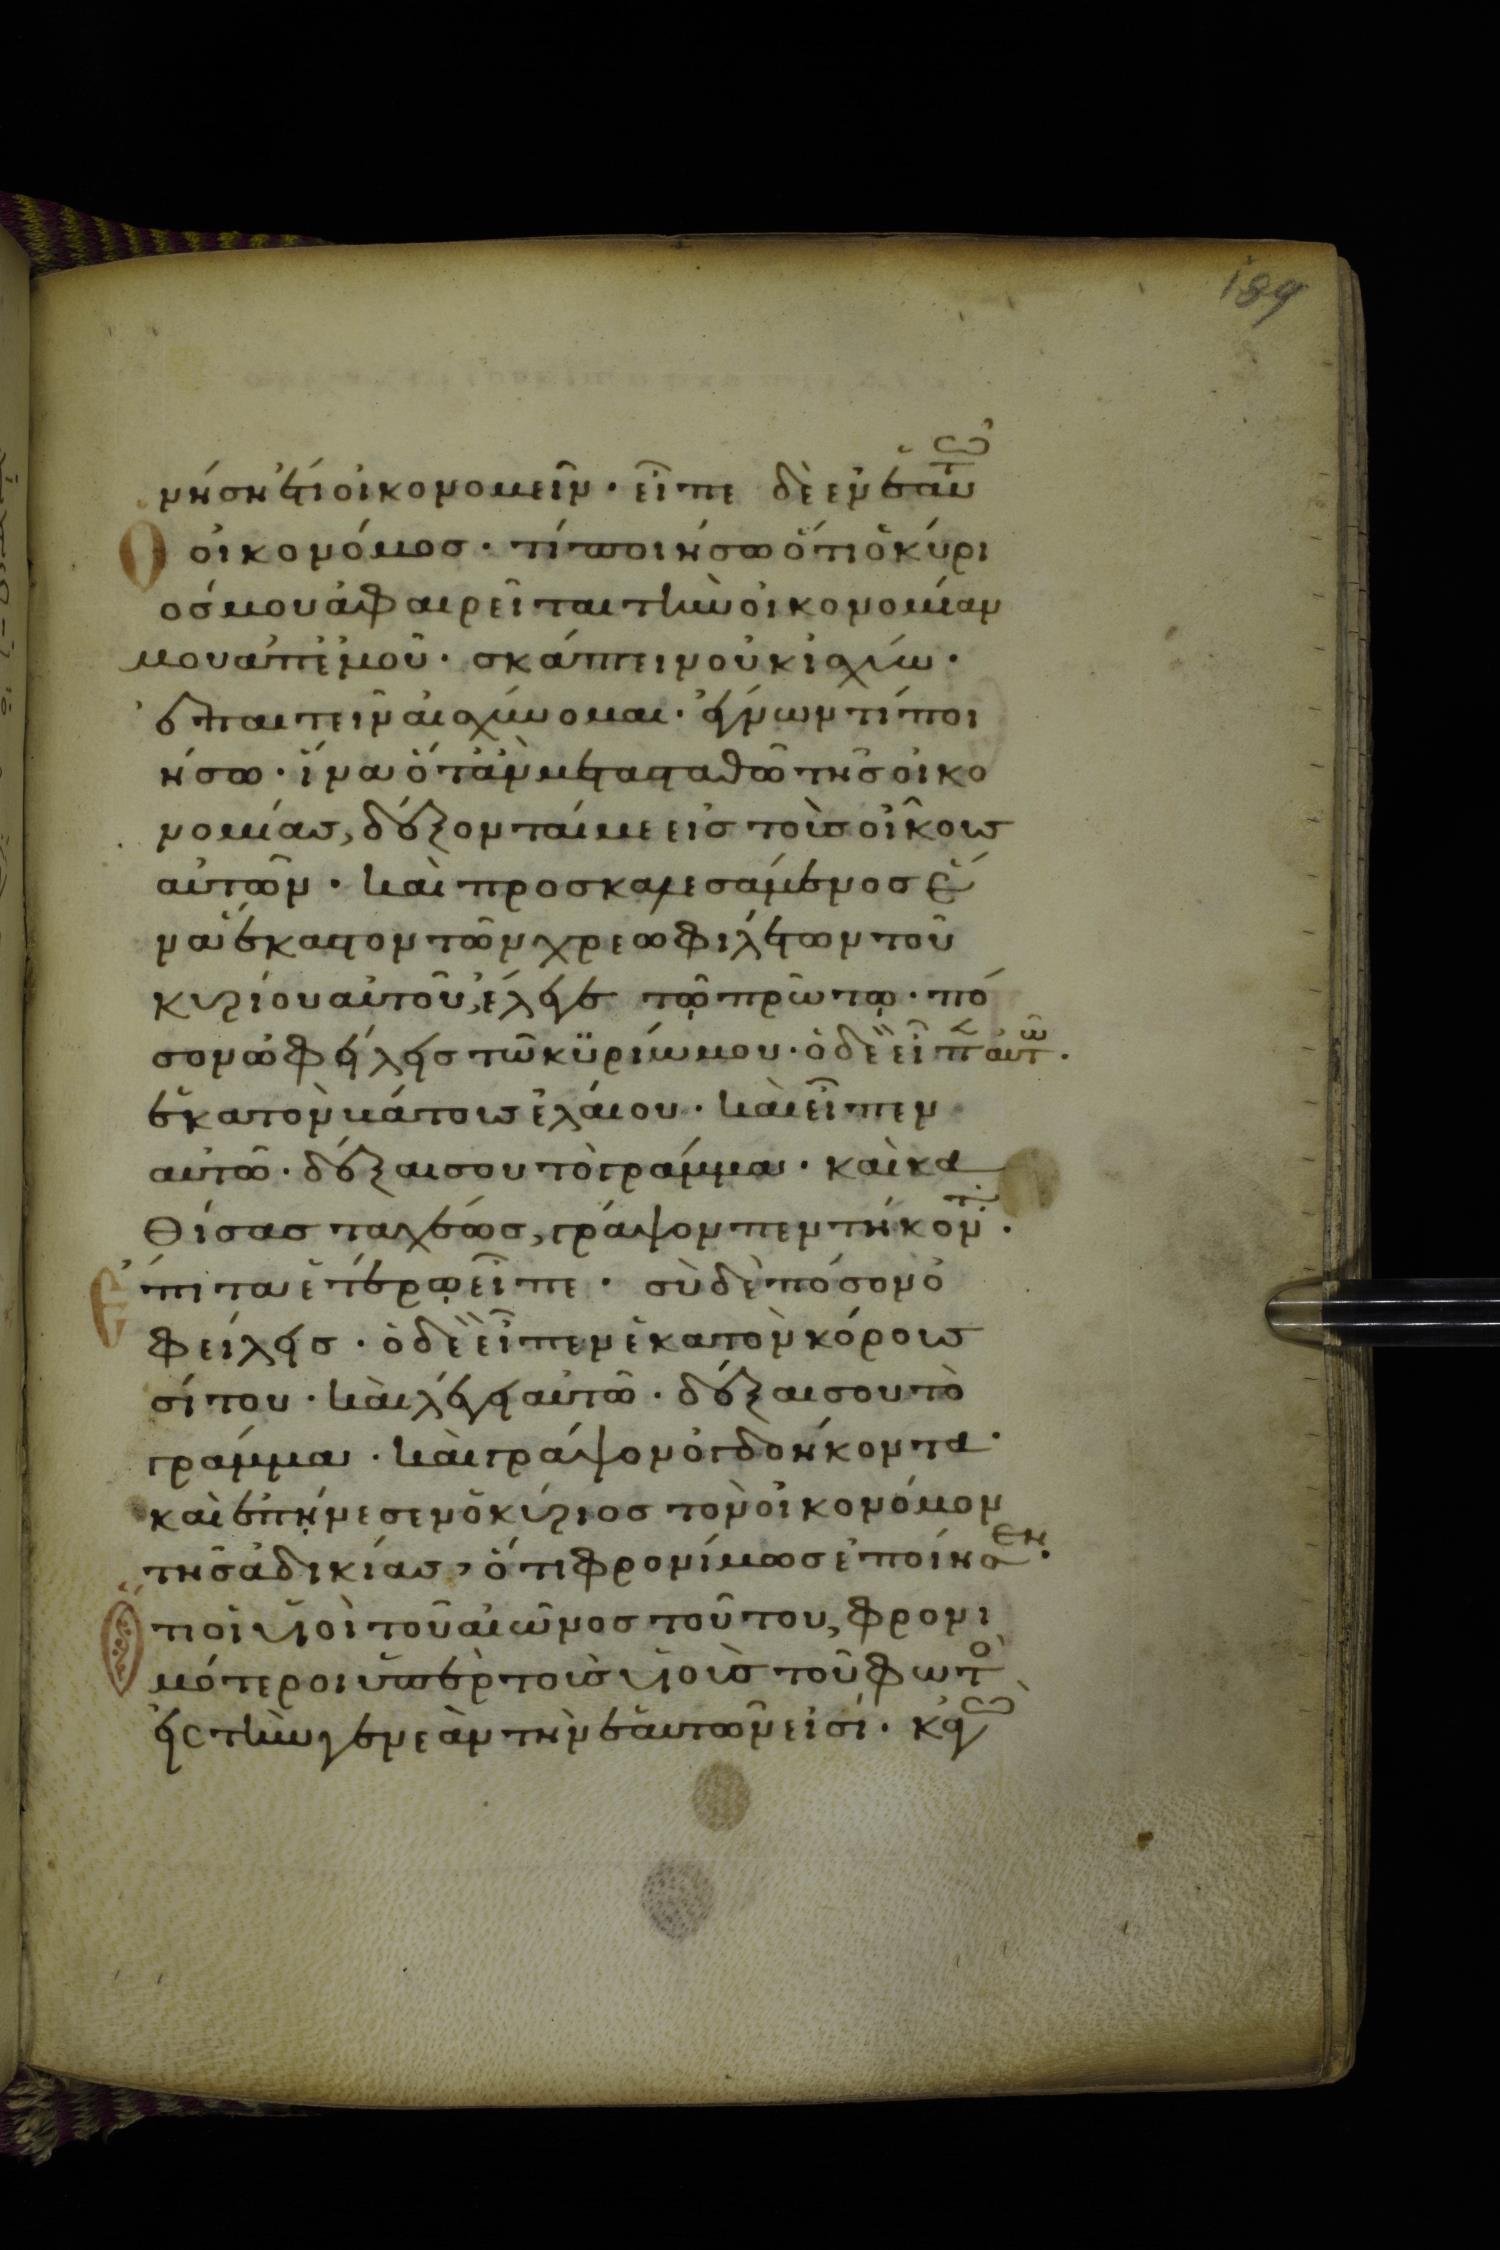 189
νήση ἔτι οἰκονομεῖν · εἶπε δὲ ἐν ἑαυτῶ
Ὁ οἰκονόμοσ · τί ποιήσω ὅτι ὁ κύρι
οσ μου ἀφαιρεῖται τὴν οἰκονομίαν
μου ἀπ ἐμοῦ · σκάπτειν οὐκ ἰσχύω ·
ἐπαιτεῖν αἰσχύνομαι · ἔγνων τί ποι
ήσω · ἵνα ὅτἂν μεταταθῶ τῆσ οἰκο
νομίασ, δέξονταί με εἰσ τοὺσ οἴκουσ
αὐτῶν · καὶ προσκαλεσάμενοσ ἕ
να ἕκαστον τῶν χρεωφιλετῶν τοῦ
κυρίου αὐτοῦ, ἔλεγε τῷ πρώτῳ · πό
σον ὀφείλεισ τῶ κϋρίω μου · ὁ δὲ εἶπ αὐτῶ ·
ἑκατὸν κάτουσ ἐλαίου · καὶ εἶπεν
αὐτῶ · δέξαι σου τὸ γράμμα · καὶ κα
θίσασ ταχέωσ, γράψον πεντήκοντ ·
Ἔπιτα ἑτέρῳ εἶπε · σὺ δὲ πόσον ὀ
φείλεισ · ὁ δὲ εἶπεν ἑκατὸν κόρουσ
σίτου · καὶ λέγει αὐτῶ · δέξαι σου τὸ
γράμμα · καὶ γράψον ὀγδοήκοντα ·
καὶ ἐπῄνεσεν ὁ κύριοσ τὸν οἰκονόμον
τῆσ ἀδικίασ, ὅτι φρονίμωσ ἐποίησεν ·
Ὅτι οἱ υἱοὶ τοῦ αἰῶνοσ τούτου, φρονι
μότεροι ὑπὲρ τοὺσ υἱοὺσ τοῦ φωτὸ
εἰσ τὴν γενεὰν τὴν ἑαυτῶν εἰσί · κἀγὼ